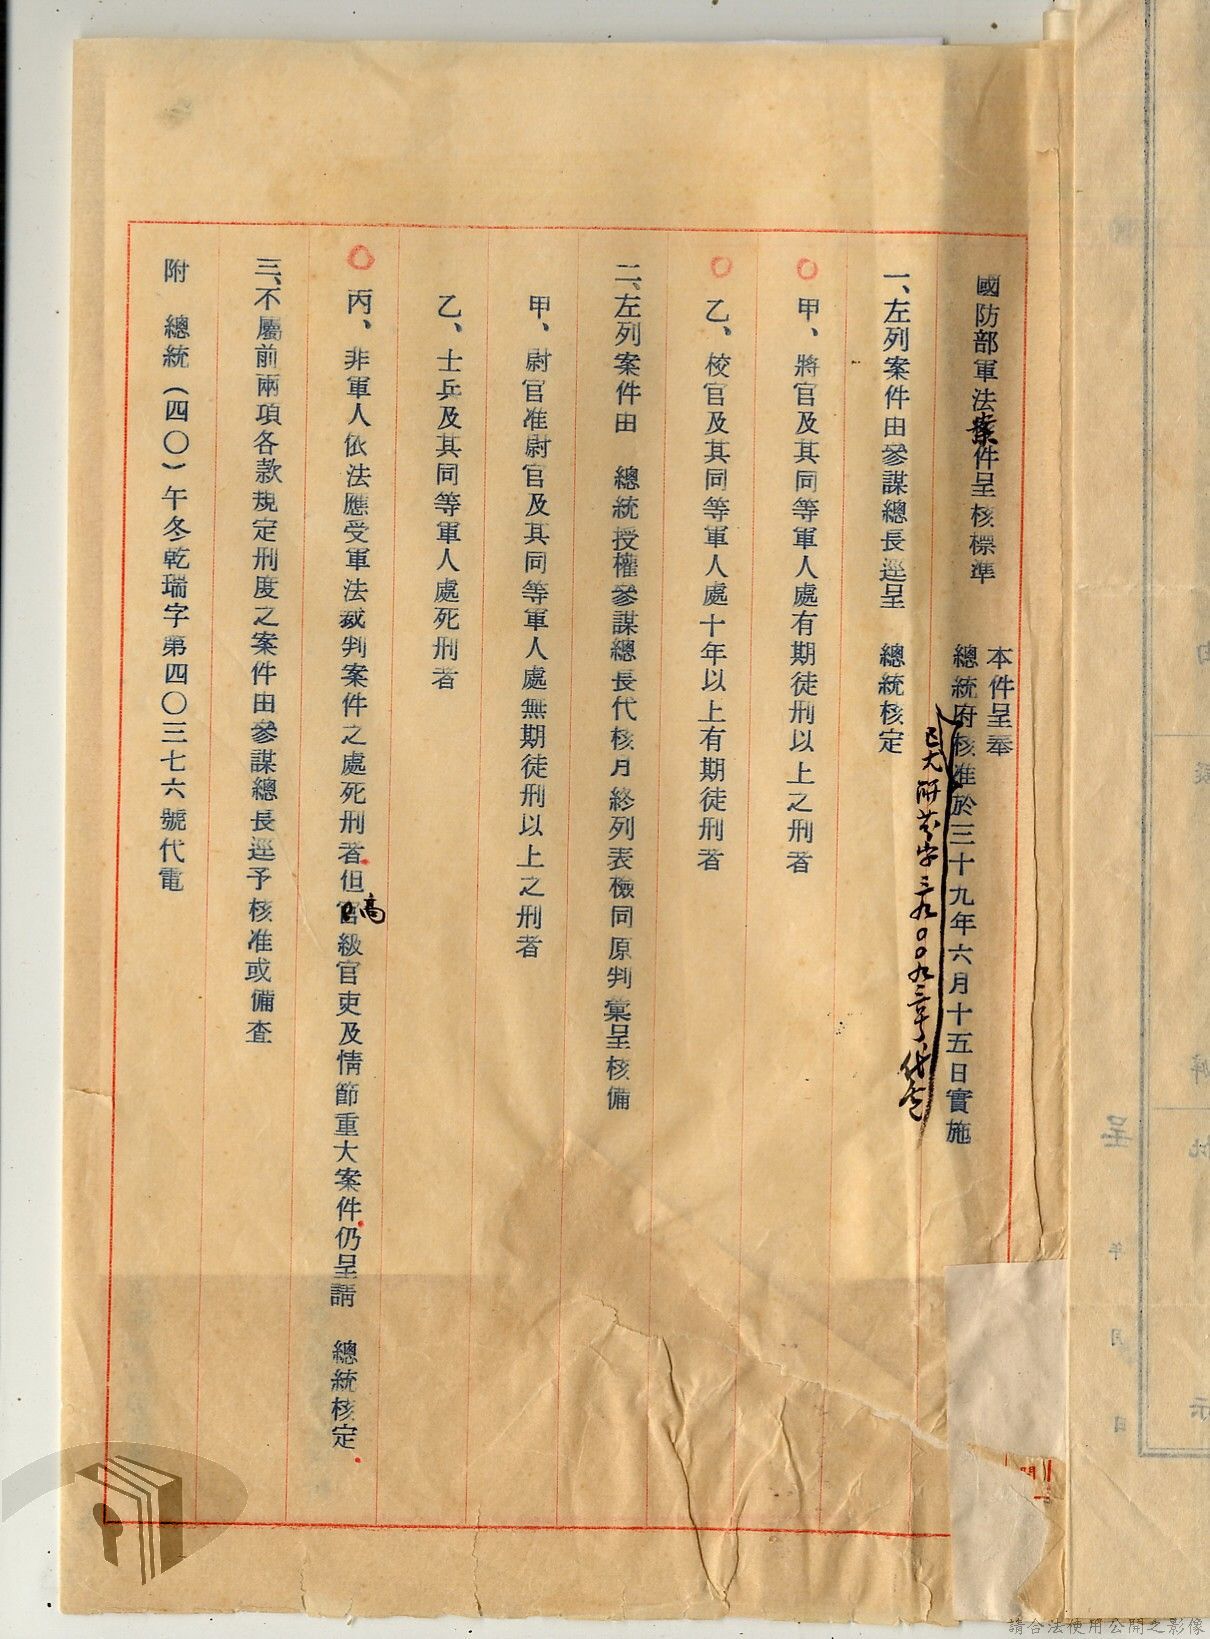 國防部軍法案件呈核標準
本件呈奉
總統府核准於三十九年六月十五日實施
一、左列案件由參謀總長逕呈　總統核定
甲、將官及其同等軍人處有期徒刑以上之刑者
乙、校官及其同等軍人處十年以上有期徒刑者
二、左列案件由　總統授權參謀總長代核月終列表檢同原判彙呈核備
甲、尉官准尉官及其同等軍人處無期徒刑以上之刑者
乙、士兵及其同等軍人處死刑者
丙、非軍人依法應受軍法裁判案件之處死刑者但高級官吏及情節重大案件仍呈請　總統核定
三、不屬前兩項各款規定刑度之案件由參謀總長逕予核准或備查
附　總統（四〇）午冬乾瑞字第四〇三七六號代電
呈
年
月
日
示
請合法使用公開之影像